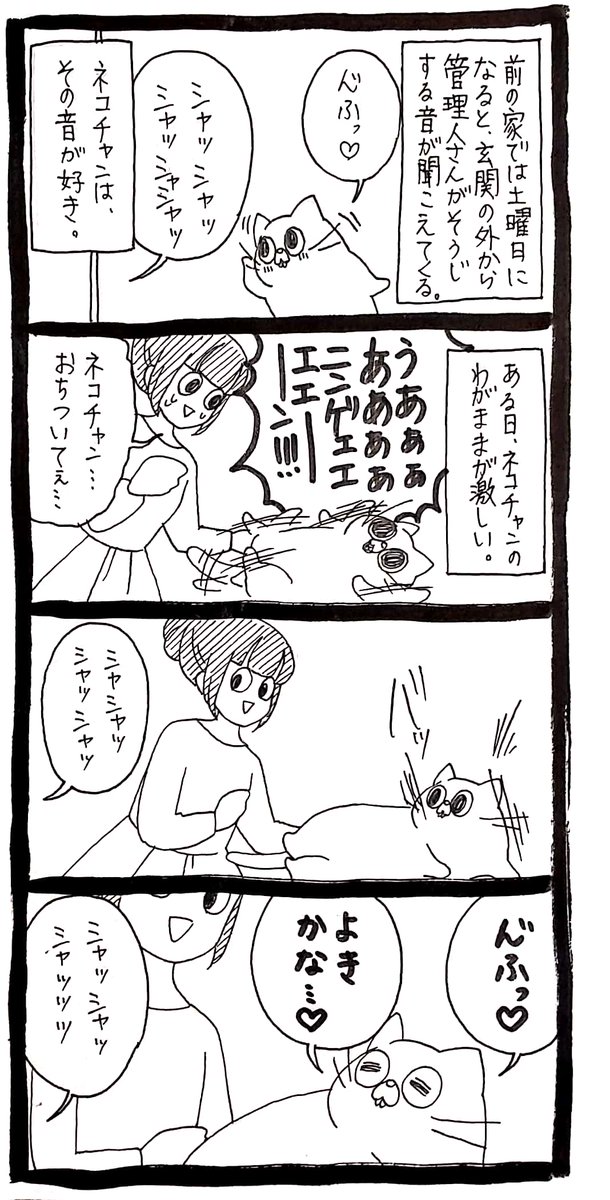 前の家では土曜日に
なると、玄関の外から
管理人さんがそうじ
する音が聞こえてくる。
んふっ♡
シャッ シャッ
シャッ シャシャッ
ネコチャンは、
その音が好き。
ある日、ネコチャンの
わがままが激しい。
うあぁぁ
ああぁぁ
ニンゲェエ
エエン!!!
ネコチャン…
おちついてぇ…
バッ
シャシャッ
シャッ シャッ
んふっ♡
よき
かな…♡
シャッ シャッ
シャッッッ